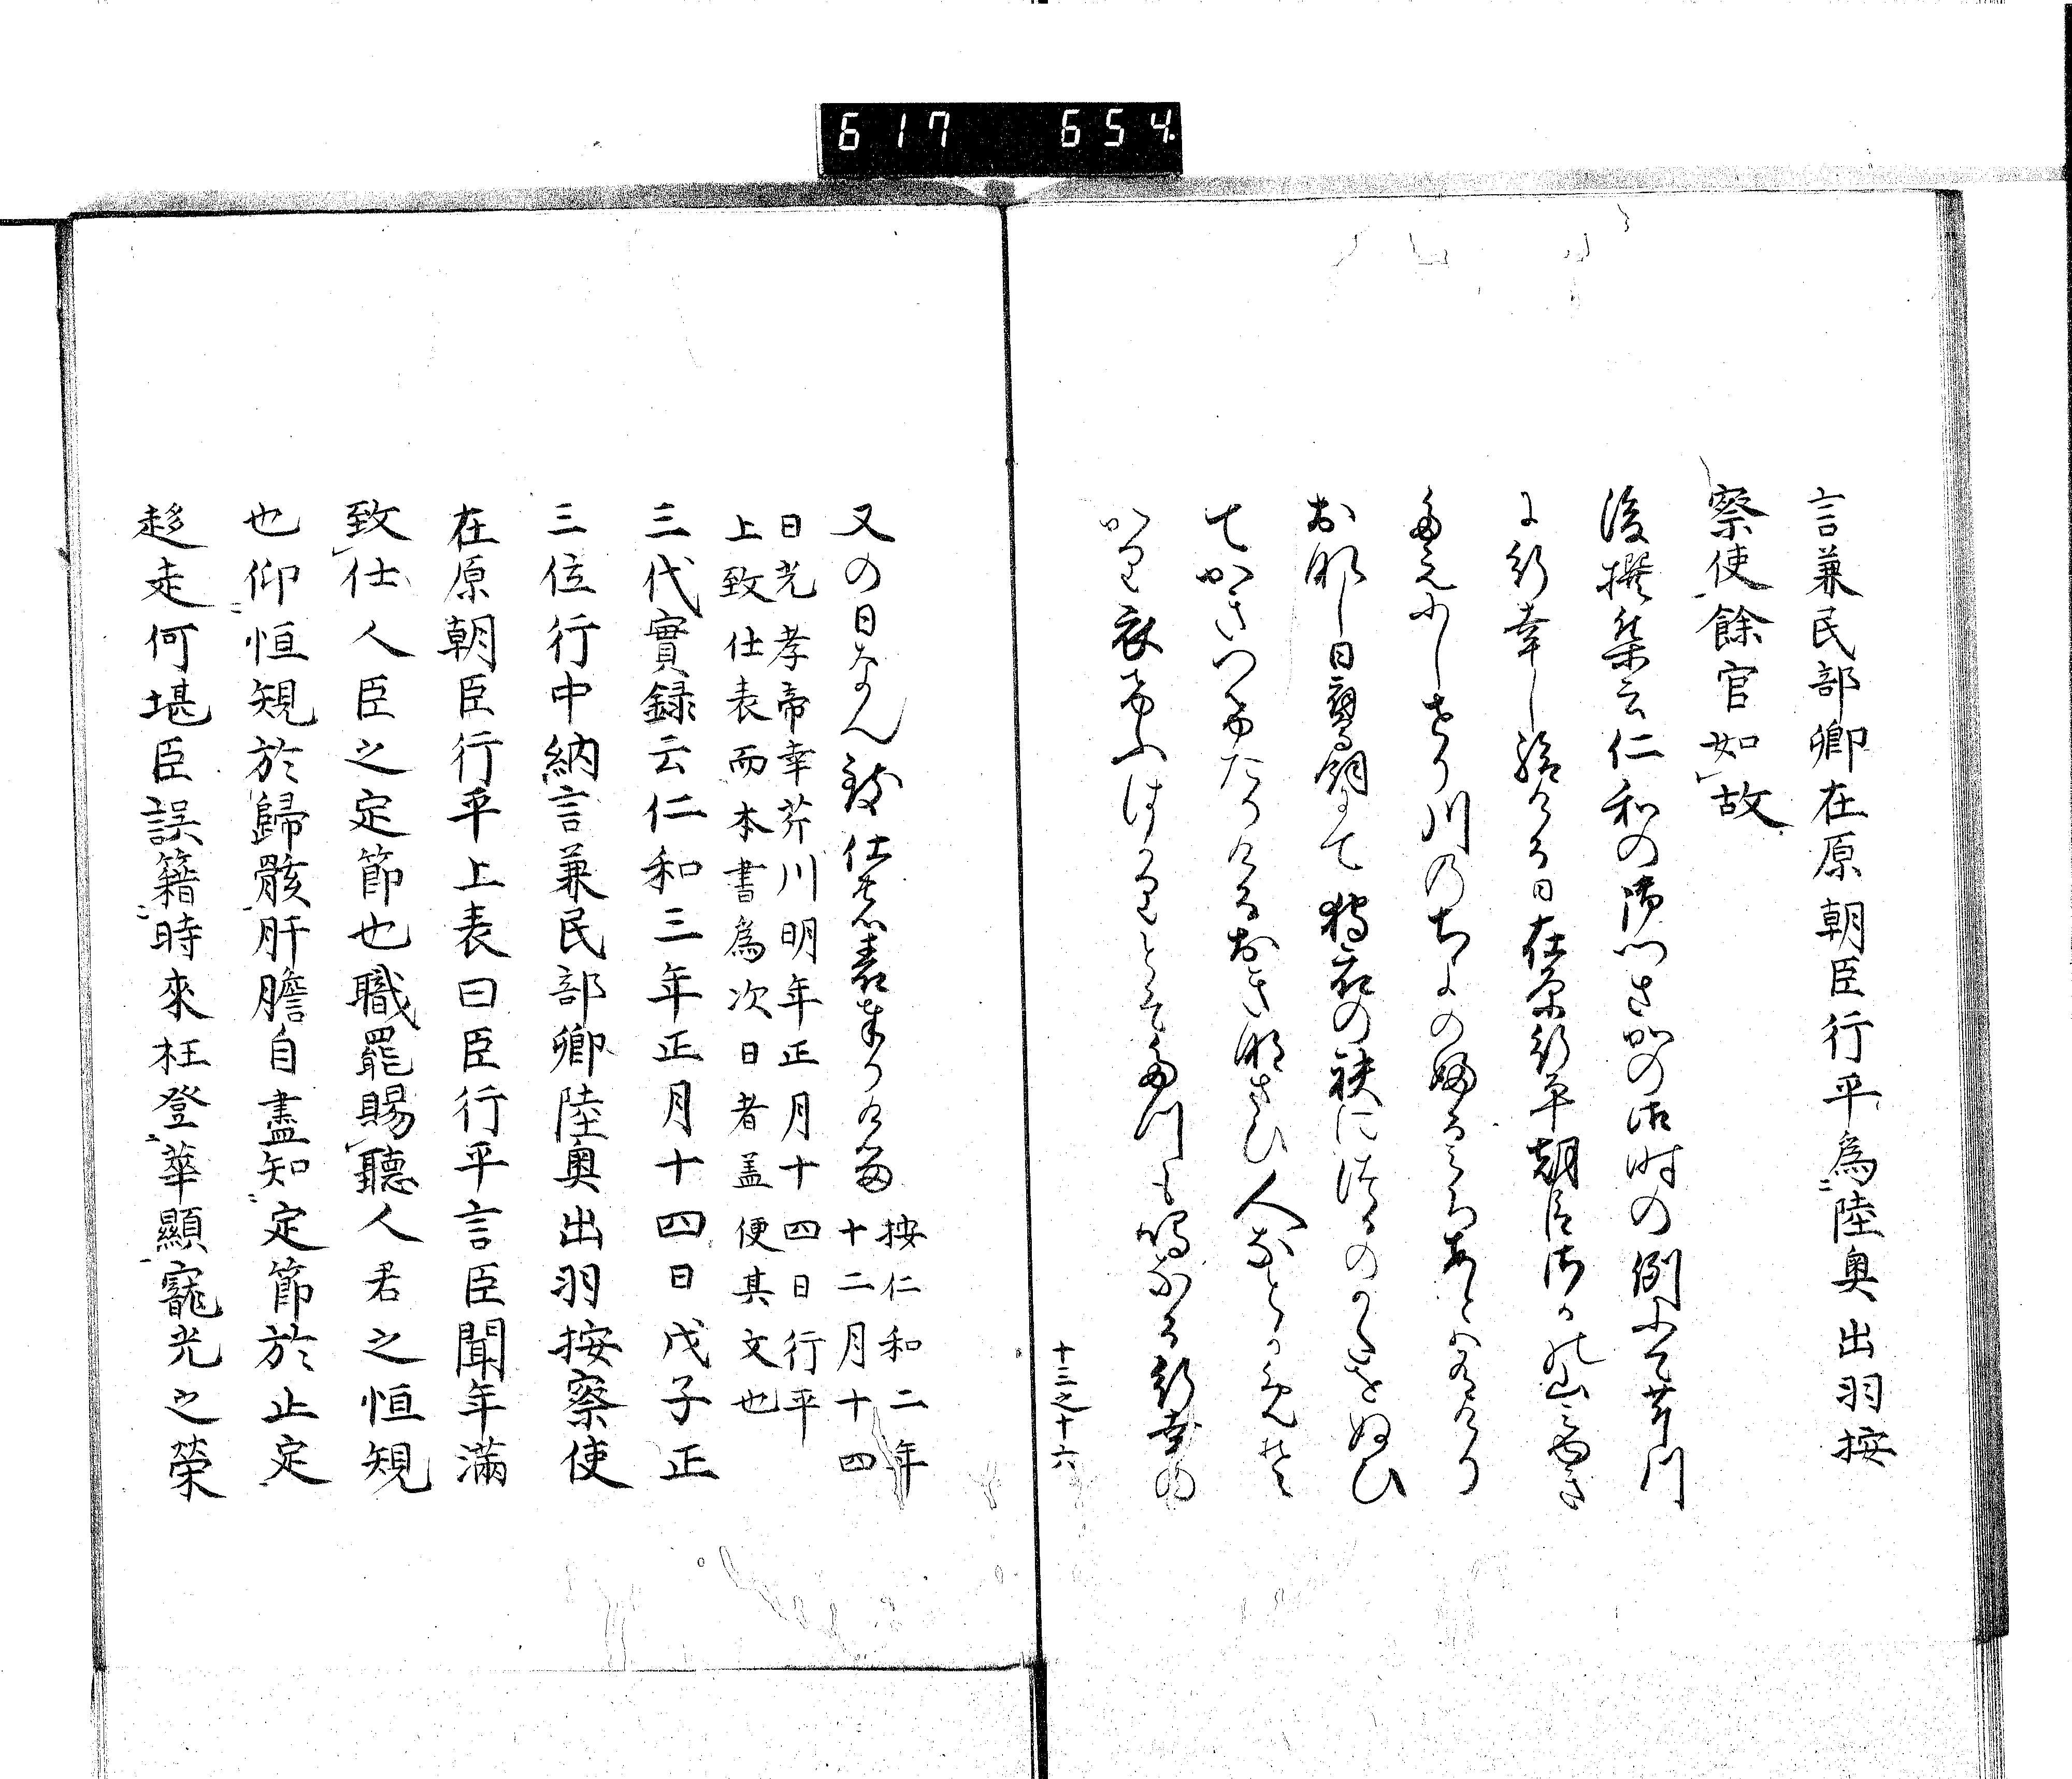 617 654
言兼民部卿在原朝臣行平為陸奥出羽按
察使餘官如故
後撰集云仁和の御門さかの御時の例にて芹川
に行幸し給ける日在原行平朝臣
さかの山みゆき
たえにしせり川の千よのふるみちあとは有けり
おなし日鷹飼にて狩衣の袂につるのかたをぬひ
てかきつけたりけるおきなさひ人なとかめそ
かり衣けふはかりとそたつも鳴なる行幸の
十三之十六
又の日なん致仕の表奉りける
按仁和二年
十二月十四
日光孝帝幸芹川明年正月十四日行平
上致仕表而本書為次日者蓋便其文也
三代實録云仁和三年正月十四日戊子正
三位行中納言兼民部卿陸奥出羽按察使
在原朝臣行平上表曰臣行平言臣聞年満
致仕人臣之定節也職罷賜聴人君之恒規
也仰恒規於歸骸肝膽自盡知定節於止定
趍走何堪臣誤籍時來枉登華顯寵光之榮